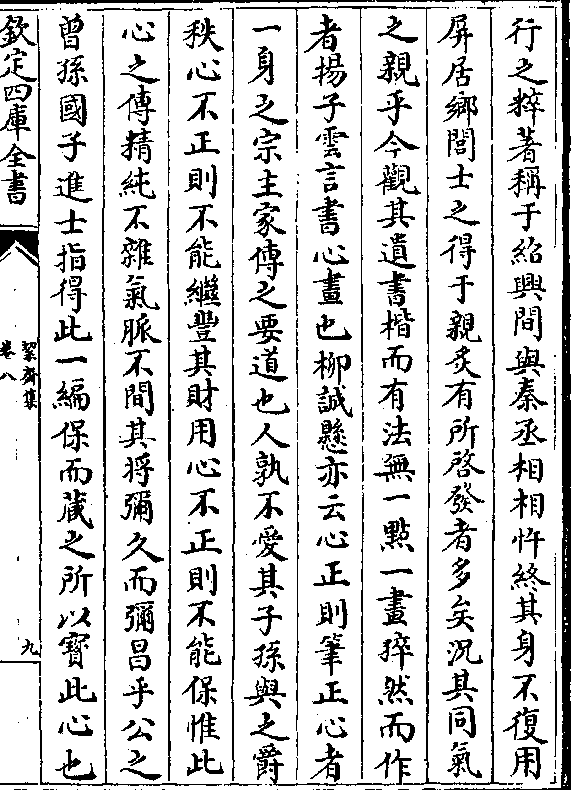 行之粹著稱于紹興間與秦丞相相忤終其身不復用
屏居鄉閭士之得于親炙有所啓發者多矣況其同氣
之親乎今觀其遺書楷而有法無一㸃一畫猝然而作
者揚子雲言書心畫也柳誠懸亦云心正則筆正心者
一身之宗主家傳之要道也人孰不愛其子孫與之爵
秩心不正則不能繼豐其財用心不正則不能保惟此
心之傳精純不雜氣脈不間其將彌久而彌昌乎公之
曾孫國子進士指得此一編保而藏之所以寳此心也
欽定四庫全書
絜齋集
卷八
九